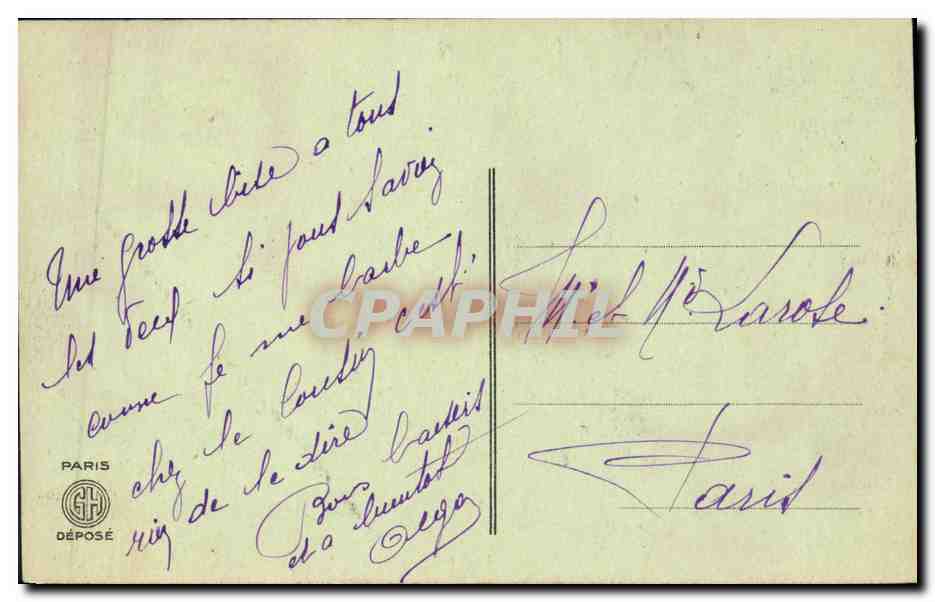 Une grosse bise a tous
les deux si vous saviez
comme je me barbe
chez le cousin c'est
rien de le dire
Bons baisers
et a bientot
Olga
Mr et Me Larose.
Paris
PARIS
GH
DÉPOSÉ
CPAPHIL